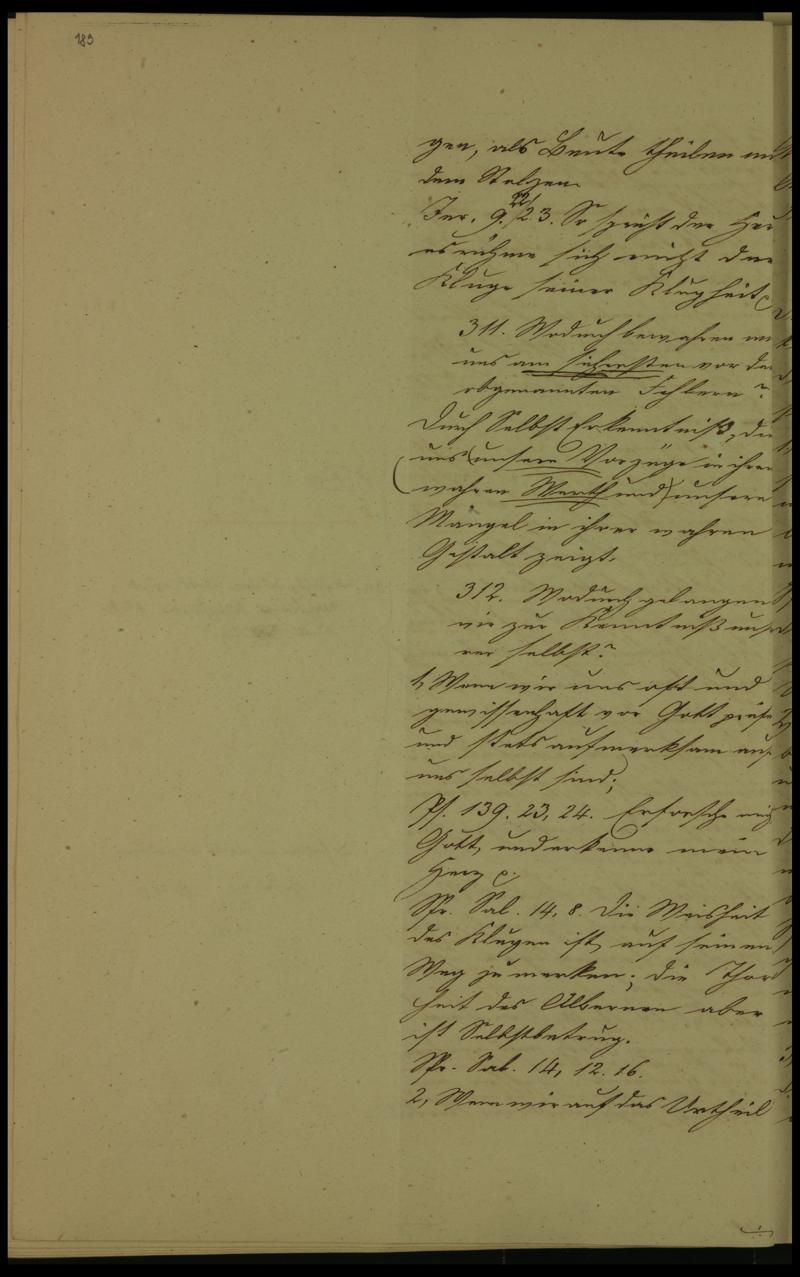 183
gen, als Beute theilen mit
dem Stolzen.
Jer. 9. 22/23. So spricht der Herr
es rühme sich nicht der
Kluge seiner Klugheit
311. Wodurch bewahren wir
uns am sichersten vor den
obgenannten Fehlern?
Durch Selbst Erkenntniß, die
uns (unsere Vorzüge in ihrem
wahren Werth und) unsere
Mängel in ihrer wahren
Gestalt zeigt.
312. Wodurch gelangen
wir zur Kenntniß unse
rer selbst?
1, Wenn wir uns oft und
gewissenhaft vor Gott prüfen
und stets aufmerksam auf
uns selbst sind;
Ps. 139. 23, 24. Erforsche mich
Gott, und erkenne mein
Herz
Spr. Sal. 14, 8. Die Weisheit
des Klugen ist, auf seinen
Weg zu merken; die Thor
heit des Albernen aber
ist Selbstbetrug.
Spr. Sal. 14, 12. 16.
2, Wenn wir auf das Urtheil